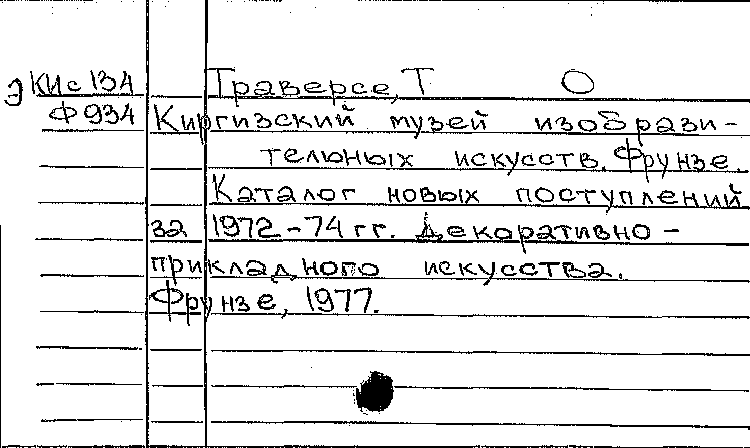 Э КИс 134 Траверсе, Т О
Ф 934 Киргизский музей изобрази-
тельных искусств. Фрунзе.
Каталог новых поступлений
за 1972-74 гг. Декоративно-
прикладного искусства.
Фрунзе, 1977.